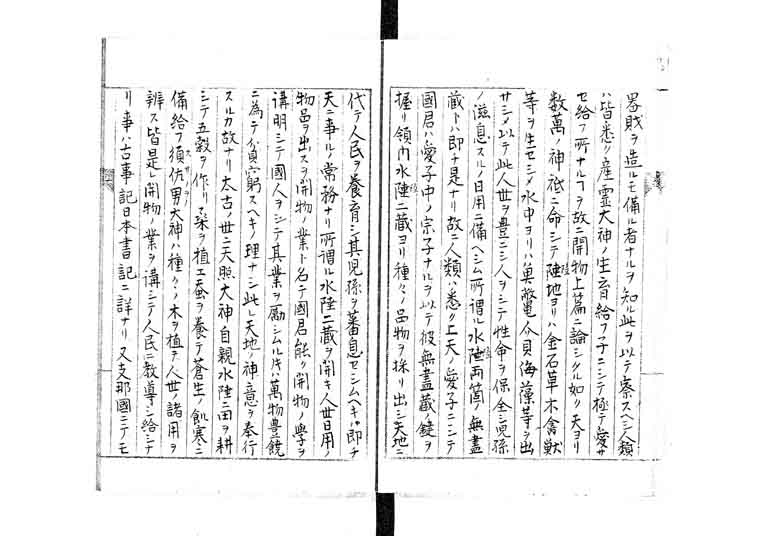 畧賊ヲ造ルモ備ル者ナルヲ知ル此ヲ以テ察スニ人類
ハ皆悉ク産霊大神ノ生育給フ子ニシテ極テ愛サ
セ給フ所ナルヿヲ故ニ開物上篇ニ論シタル如ク天ヨリ
数萬ノ神祇ニ命シテ陸地ヨリハ金石草木禽獣
等ヲ生セシメ水中ヨリハ魚鼈介貝海藻等ヲ出
サシメ以テ此人世ヲ豊ニシ人ヲシテ性命ヲ保全シ児孫
ノ滋息スルノ日用ニ備ヘシム所謂ル水陸両箇ノ無盡
蔵トハ即チ是ナリ故ニ人類ハ悉ク上天ノ愛子ニシテ
國君ハ愛子中ノ宗子ナルヲ以テ彼無盡蔵ノ鍵ヲ
握リ領内水陸二蔵ヨリ種々ノ品物ヲ採リ出シ天地ニ
代テ人民ヲ養育シ其児孫ヲ蕃息セシムヘキハ即チ
天ニ事ルノ常務ナリ所謂ル水陸二蔵ヲ開キ人世日用ノ
物品ヲ出スヲ開物ノ業ト名テ國君能ク開物ノ学ヲ
講明シテ國人ヲシテ其業ヲ勵シムル片ハ萬物豊饒
ニ為テ貧窮スヘキノ理ナシ此レ天地ノ神意ヲ奉行
スルカ故ナリ太古ノ世ニ天照大神自親水陸二田ヲ耕
シテ五穀ヲ作リ桑ヲ植エ蚕ヲ養テ蒼生ノ飢寒ニ
備給フ須佐男大神ハ種々ノ木ヲ植テ人世ノ諸用ヲ
辨ス皆是レ開物ノ業ヲ講シテ人民ニ教導シ給シナ
リ事ハ古事記日本書記ニ詳ナリ又支那國ニテモ